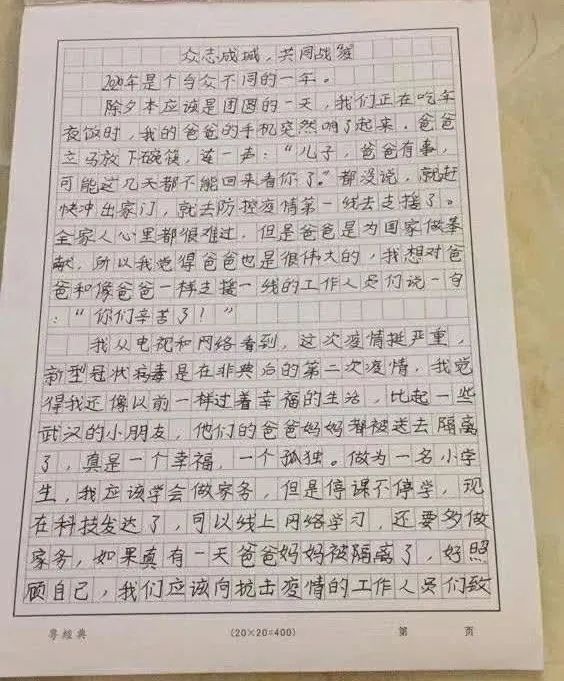 众志成城，共同战疫
2020年是个与众不同的一年。
除夕本应该是团圆的一天，我们正在吃年
夜饭时，我的爸爸的手机突然响了起来，爸爸
立马放下碗筷，连一声：“儿子，爸爸有事，
可能这几天都不能回来看你了。”都没说，就赶
快冲出家门，就去防控疫情第一线去支援了。
全家人心里都很难过，但是爸爸是为国家做奉
献，所以我觉得爸爸也是很伟大的，我想对爸
爸和像爸爸一样支援一线的工作人员们说一句
：“你们辛苦了！”
我从电视和网络看到，这次疫情挺严重，
新型冠状病毒是在非典后的第二次疫情，我觉
得我还像以前一样过着幸福的生活，比起一些
武汉的小朋友，他们的爸爸妈妈都被送去隔离
了，真是一个幸福，一个孤独。做为一名小学
生，我应该学会做家务，但是停课不停学，现
在科技发达了，可以线上网络学习，还要多做
家务，如果真有一天爸爸妈妈被隔离了，好照
顾自己，我们应该向抗击疫情的工作人员们致
粤经典 (20×20=400) 第 页